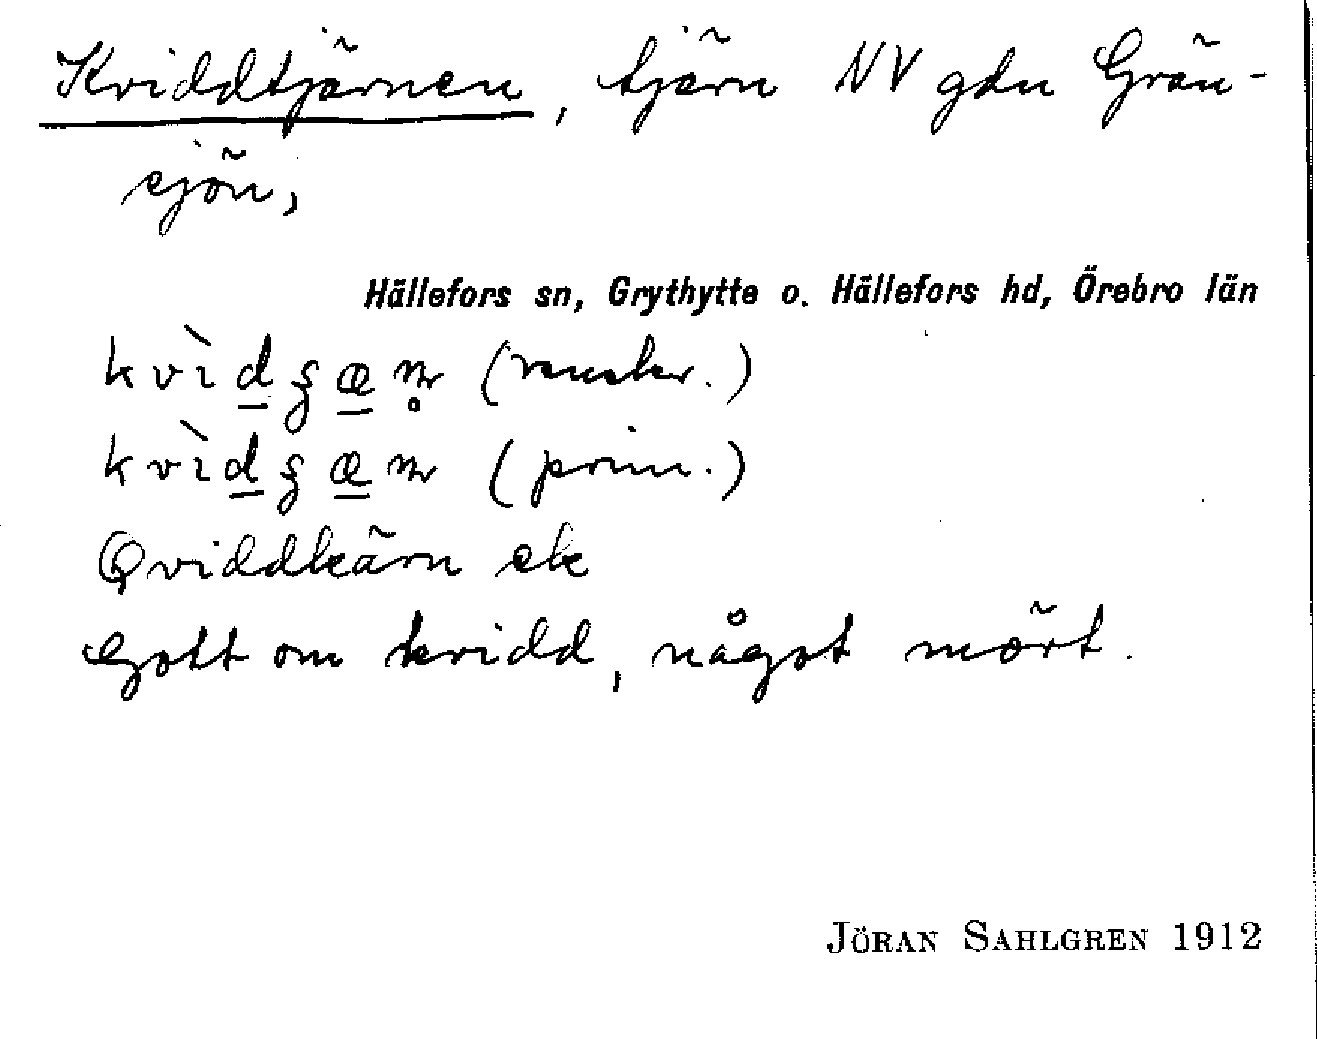 Kviddtjärnen, tjärn NV gdn Grän-
sjön,
Hällefors sn, Grythytte o. Hällefors hd, Örebro län
kvìdʒæn̥ (
kvìdʒæn (prim.)
Qviddkärn ek
Gott om kvidd, något mört.
JÖRAN SAHLGREN 1912